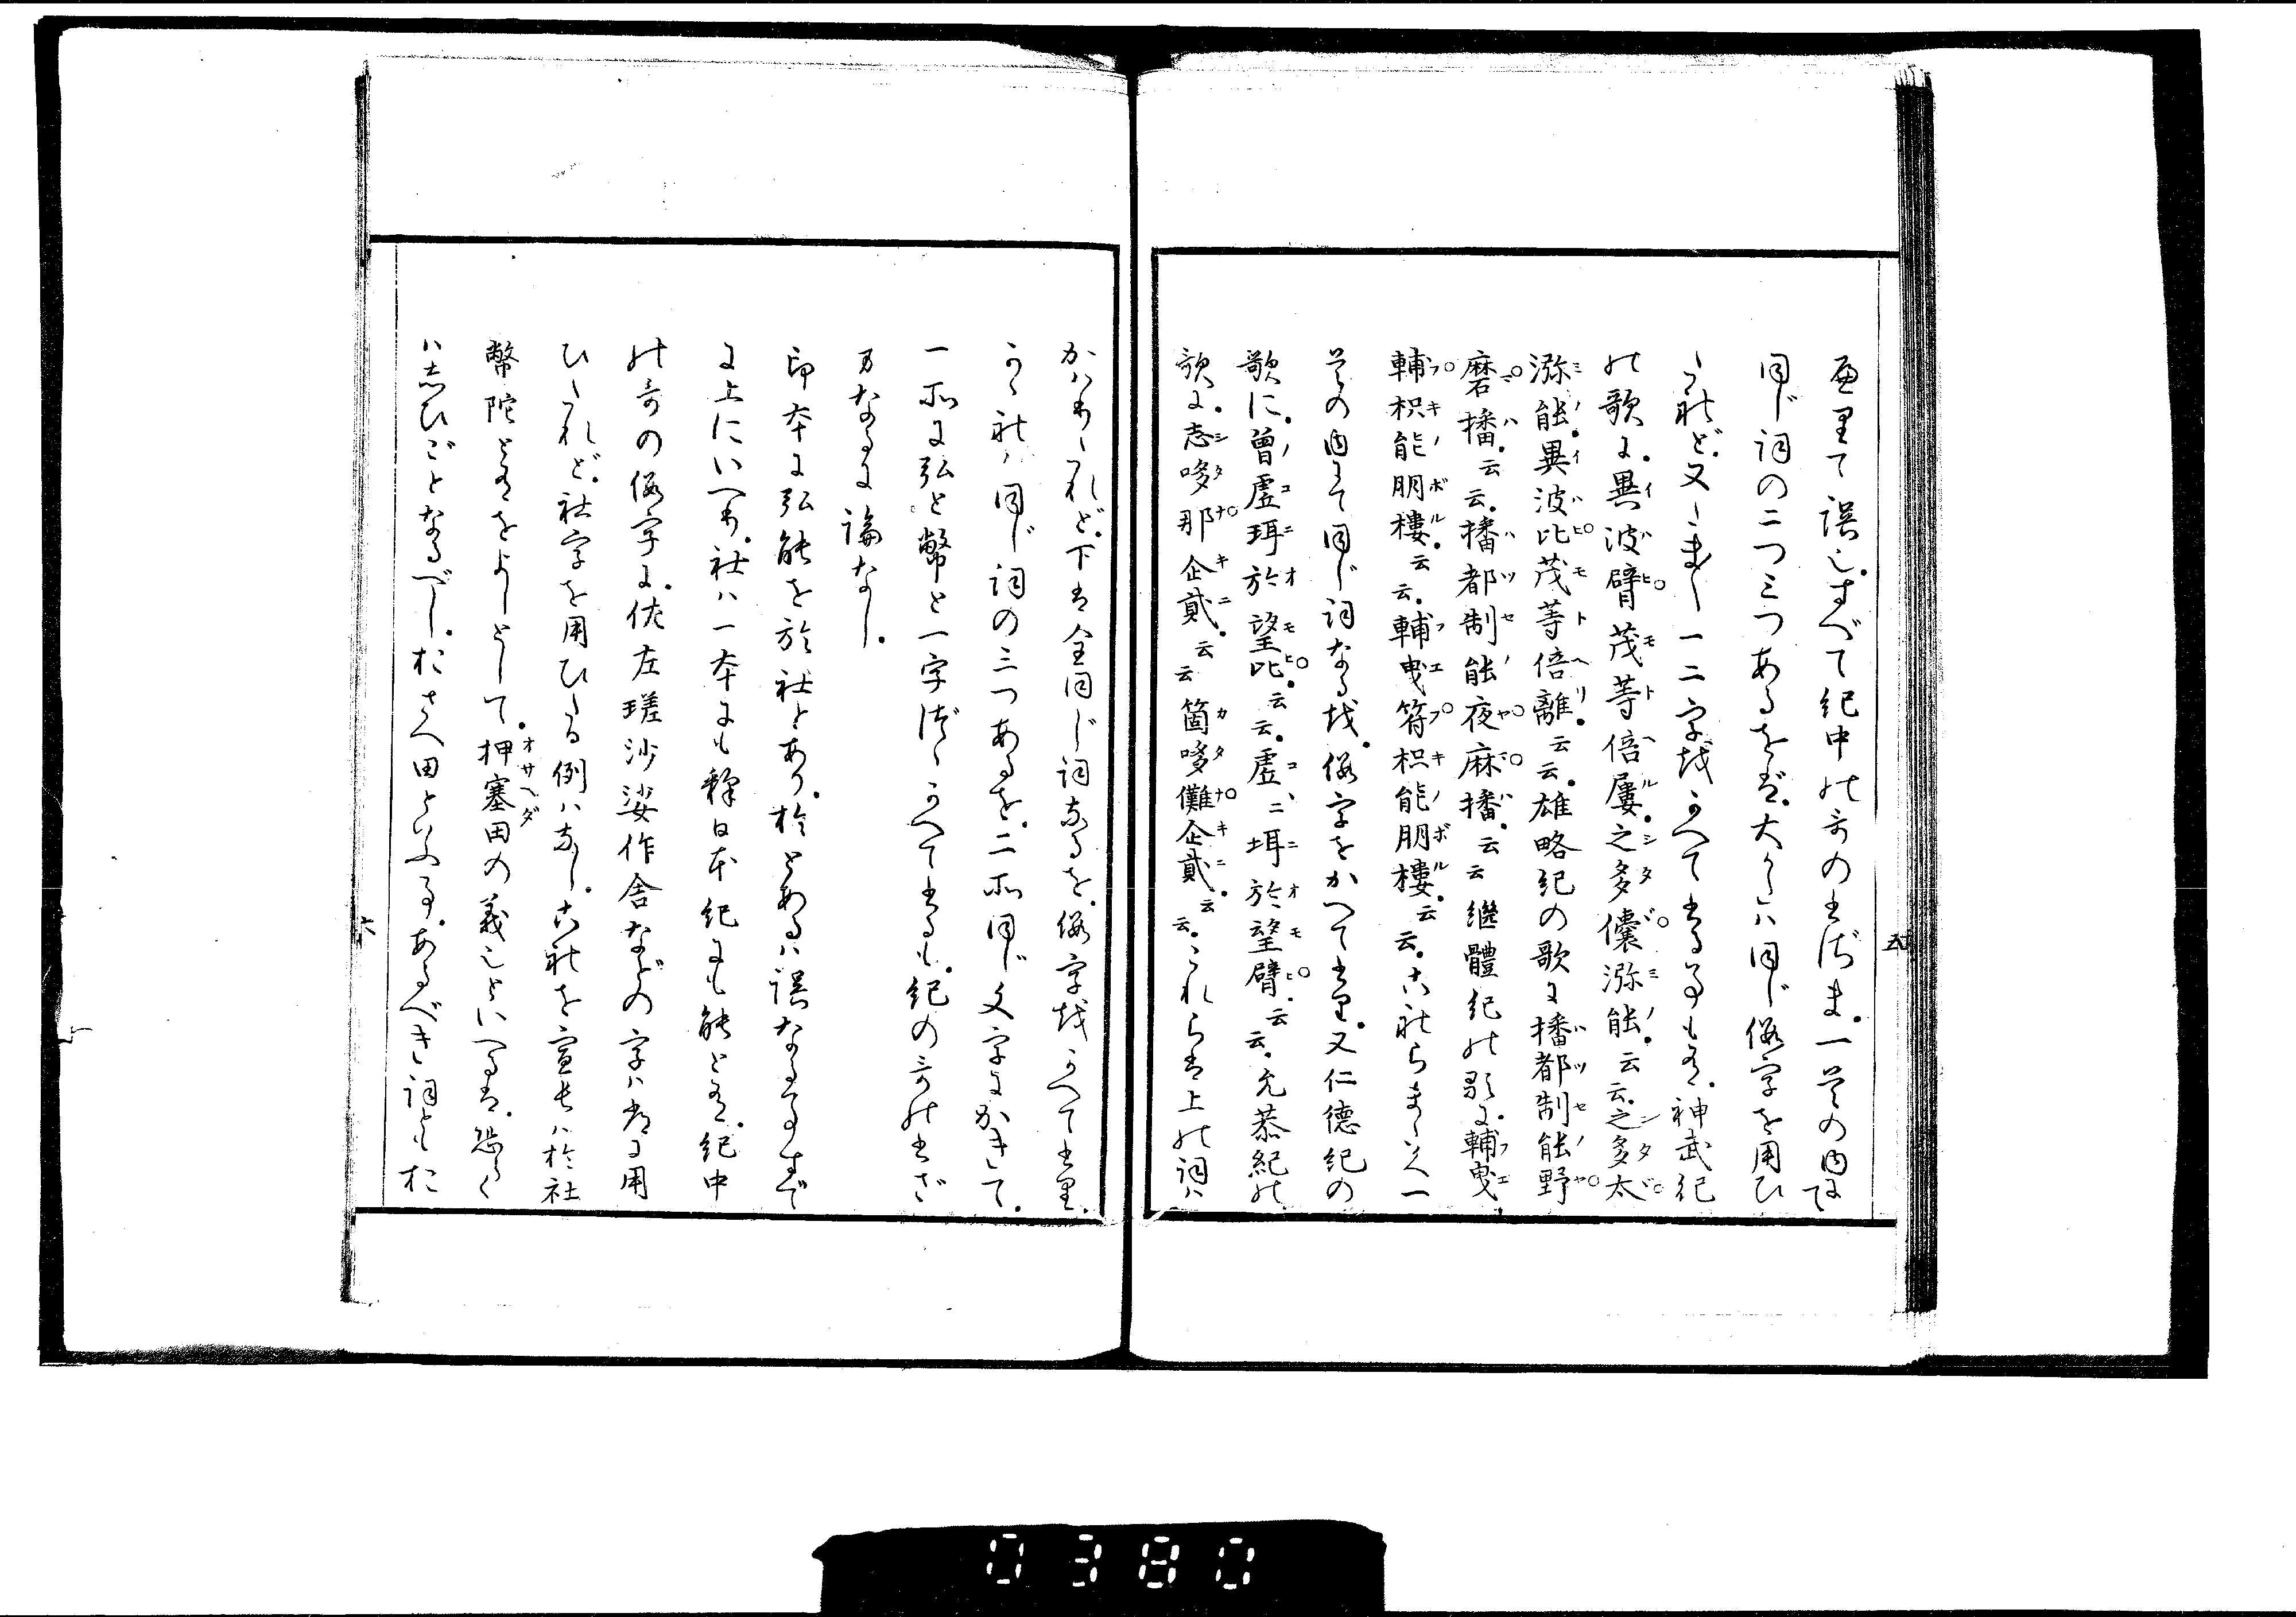 里て誤也。すべて紀中の哥の書ざま。一首の内に
同じ詞の二つ三つあるをば。大かたハ同じ仮字を用ひ
たれど。又たまたま一二字をかへて書る事も有。神武紀
の歌に。異波臂茂等倍屢。之多儾瀰能。云云。之多太
瀰能。異波比茂等倍離。云云。雄略紀の歌に播都制能野
磨播。云云。播都制能夜麻播。云云 継體紀の歌に。輔曳
輔枳能朋樓。云云。輔曳符枳能朋樓。云云。これらまさしく一
首の内にて同じ詞なるを。仮字をかへて書り。又仁徳紀の
歌に。曽虚珥於望比。云云。虚ゝ珥於望臂。云云。允恭紀の
歌に。志哆那企貳。云云 箇哆儺企貳。云云。これらは上の詞ハ
かはりたれど。下は全同じ詞なるを。仮字をかへて書り。
かゝれハ同じ詞の三つあるを。二所同じ文字にかきて。
一所に弘と幣と一字づゝかへて書るも。紀の哥の書ざ
まなるに論なし。
印本に弘能を於社とあり。於とあるハ誤なる事すで
に上にいへり。社ハ一本にも釋日本紀にも能と有。紀中
の哥の仮字に。佐左瑳沙娑作舎などの字ハ常に用
ひたれど。社字を用ひたる例ハなし。これを宣長ハ於社
幣陀と有をよしとして。押塞田の義也といへるは。恐らく
ハしひごとなるべし。おさへ田といふ事。あるべき詞ともお
五
六
0380